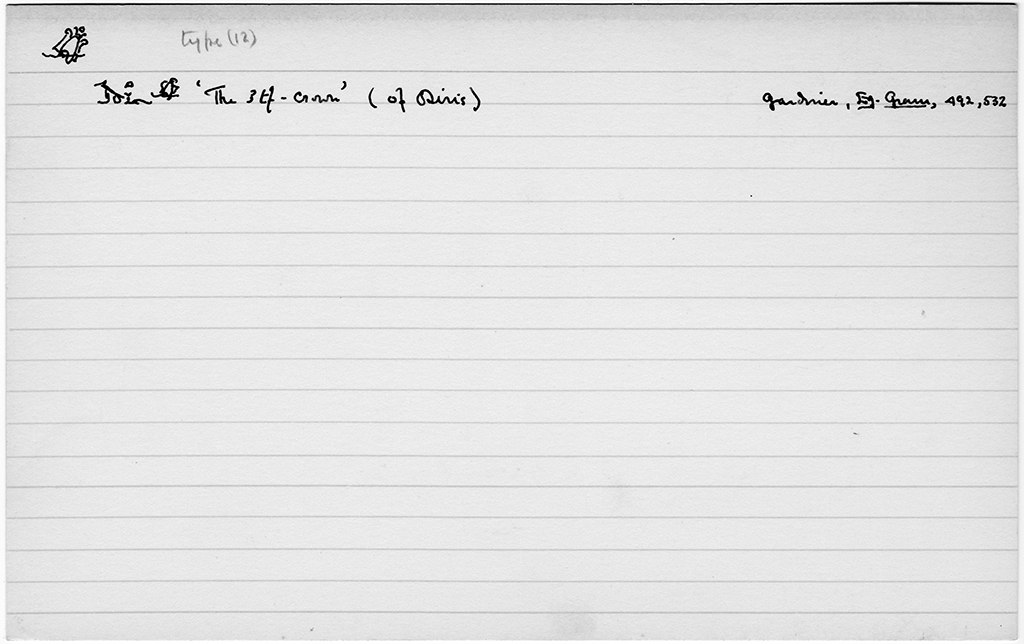 type (12)
'The 3tf-crown' (of Osiris) Gardiner, Eg. Gram, 492, 532